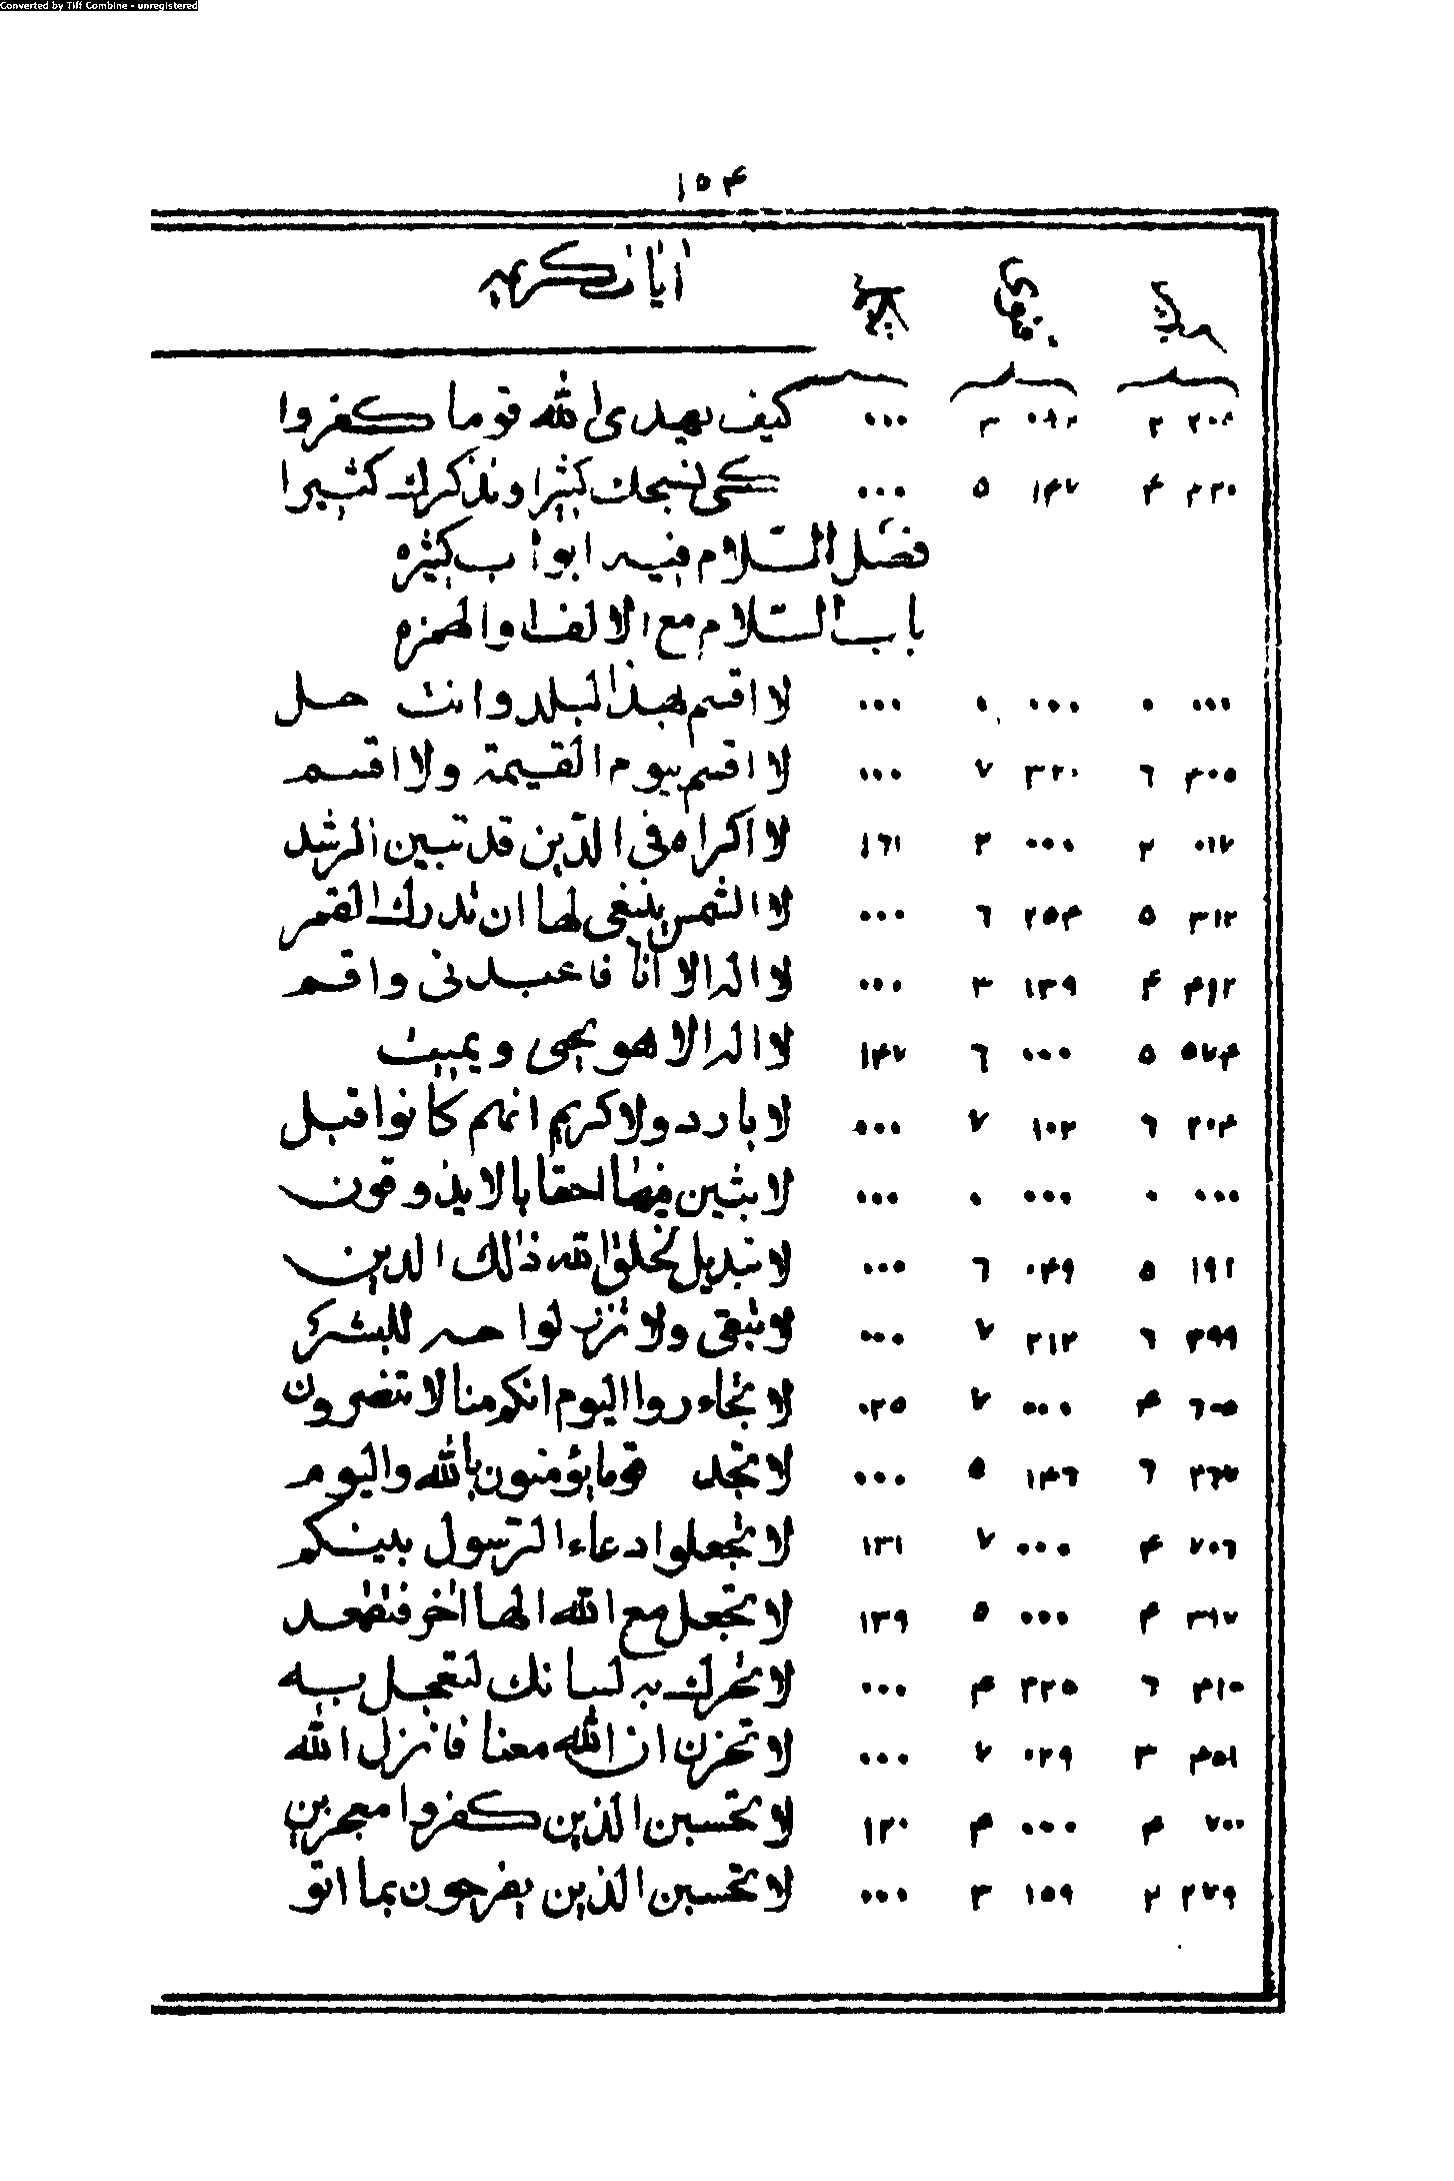 Converted by Tiff Combine - unregistered
١٥۴
ايات كريمه
٢ ٢٠٨ ٣ ٠٨٢ ٠٠٠ كيف يهدى الله قوما كفروا
۴ ٢٢٠ ٥ ١۴٧ ٠٠٠ كى نسبحك كثيرا ونذكرك كثيرا
فصل السلام فيه ابواب كثيره
باب السلام مع الالف والهمزه
٠ ٠٠٠ ٠ ٠٠٠ ٠٠٠ لا اقسم بهذا البلد وانت حل
٦ ۴٠٥ ٧ ٣٢٠ ٠٠٠ لا اقسم بيوم القيمة ولا اقسم
٢ ٠١٧ ٢ ٠٠٠ ١٦١ لا اكراه فى الدين قد تبين الرشد
٥ ٣١٢ ٦ ٢٥۴ ٠٠٠ لا الشمس ينبغى لها ان تدرك القمر
۴ ۴١٢ ٣ ١٣٩ ٠٠٠ لا اله الا انا فاعبدنى واقم
٥ ٥٧۴ ٦ ٠٠٠ ١۴٧ لا اله الا هو يحيى ويميت
٦ ٢٠۴ ٧ ١٠٢ ٠٠٠ لا بارد ولا كريم انهم كانوا قبل
٠ ٠٠٠ ٠ ٠٠٠ ٠٠٠ لابثين فيها احقابا لايذوقون
٥ ١٩٢ ٦ ٠۴٩ ٠٠٠ لا تبديل لخلق الله ذلك الدين
٦ ٣٩٩ ٧ ٢١٢ ٠٠٠ لا تبقى ولا تذر لواحه للبشر
۴ ٦٠٥ ٧ ٠٠٠ ٠٢٥ لا تجاءروا اليوم انكم منا لا تنصرون
٦ ٢٦٧ ٥ ١۴٦ ٠٠٠ لا تجد قوما يؤمنون بالله واليوم
۴ ٧٠٦ ٧ ٠٠٠ ١٣١ لا تجعلوا دعاء الرسول بينكم
۴ ٣١٧ ٥ ٠٠٠ ١٣٩ لا تجعل مع الله الها اخر فتقعد
٦ ۴١٠ ۴ ٣٢٥ ٠٠٠ لا تحرك به لسانك لتعجل به
٣ ۴٥١ ٧ ٠٢٩ ٠٠٠ لا تحزن ان الله معنا فانزل الله
۴ ٧٠٠ ۴ ٠٠٠ ١٢٠ لا تحسبن الذين كفروا معجزين
٢ ٢٧٩ ٣ ١٥٩ ٠٠٠ لا تحسبن الذين يفرحون بما اتو